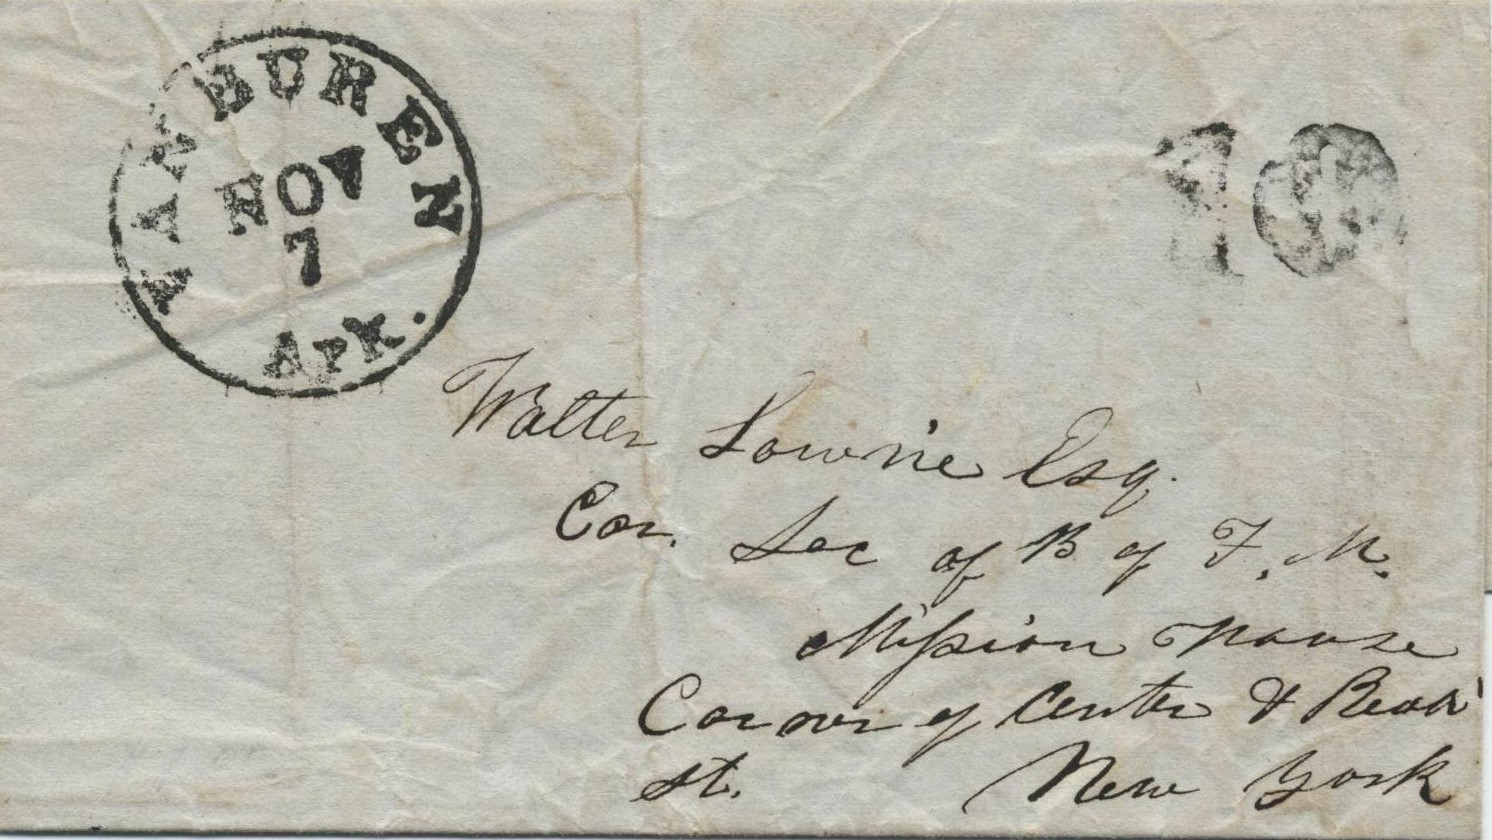 VAN BUREN
NOV
7
Ark.
10
Walter Lowrie Esq.
Cor. Sec of B of F. M.
Mission House
Corner of Center & Read
st. New York